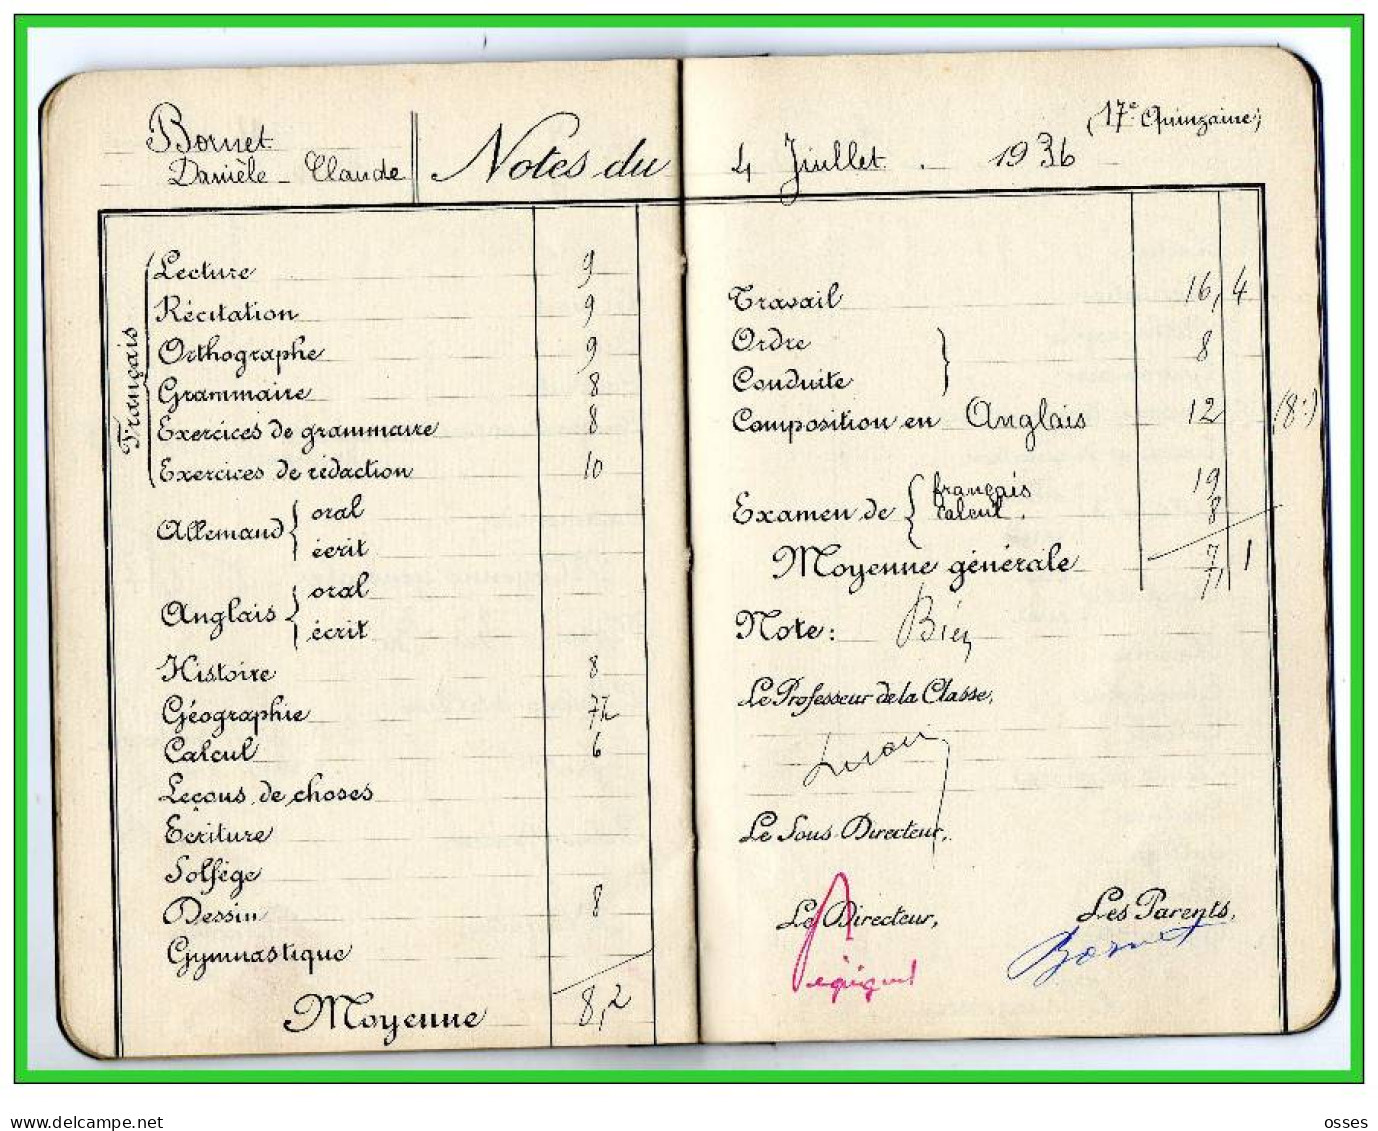 Bornet
Danièle - Claude
Notes du
4 Juillet. - 1936
(17e Quinzaine)
Français
Lecture 9
Récitation 9
Orthographe 9
Grammaire 8
Exercices de grammaire 8
Exercices de rédaction 10
Allemand { oral
écrit
Anglais { oral
écrit
Histoire 8
Géographie 7½
Calcul 6
Leçons de choses
Ecriture
Solfège
Dessin 8
Gymnastique
Moyenne 8,2
Travail 16,4
Ordre }
8
Conduite
Composition en Anglais 12 (8:)
Examen de { français 19
calcul. 8
Moyenne générale 71,1
Note: Bien
Le Professeur de la Classe,
Le Sous-Directeur,
Le Directeur,
Les Parents,
Bornet
delcampe.net
osses